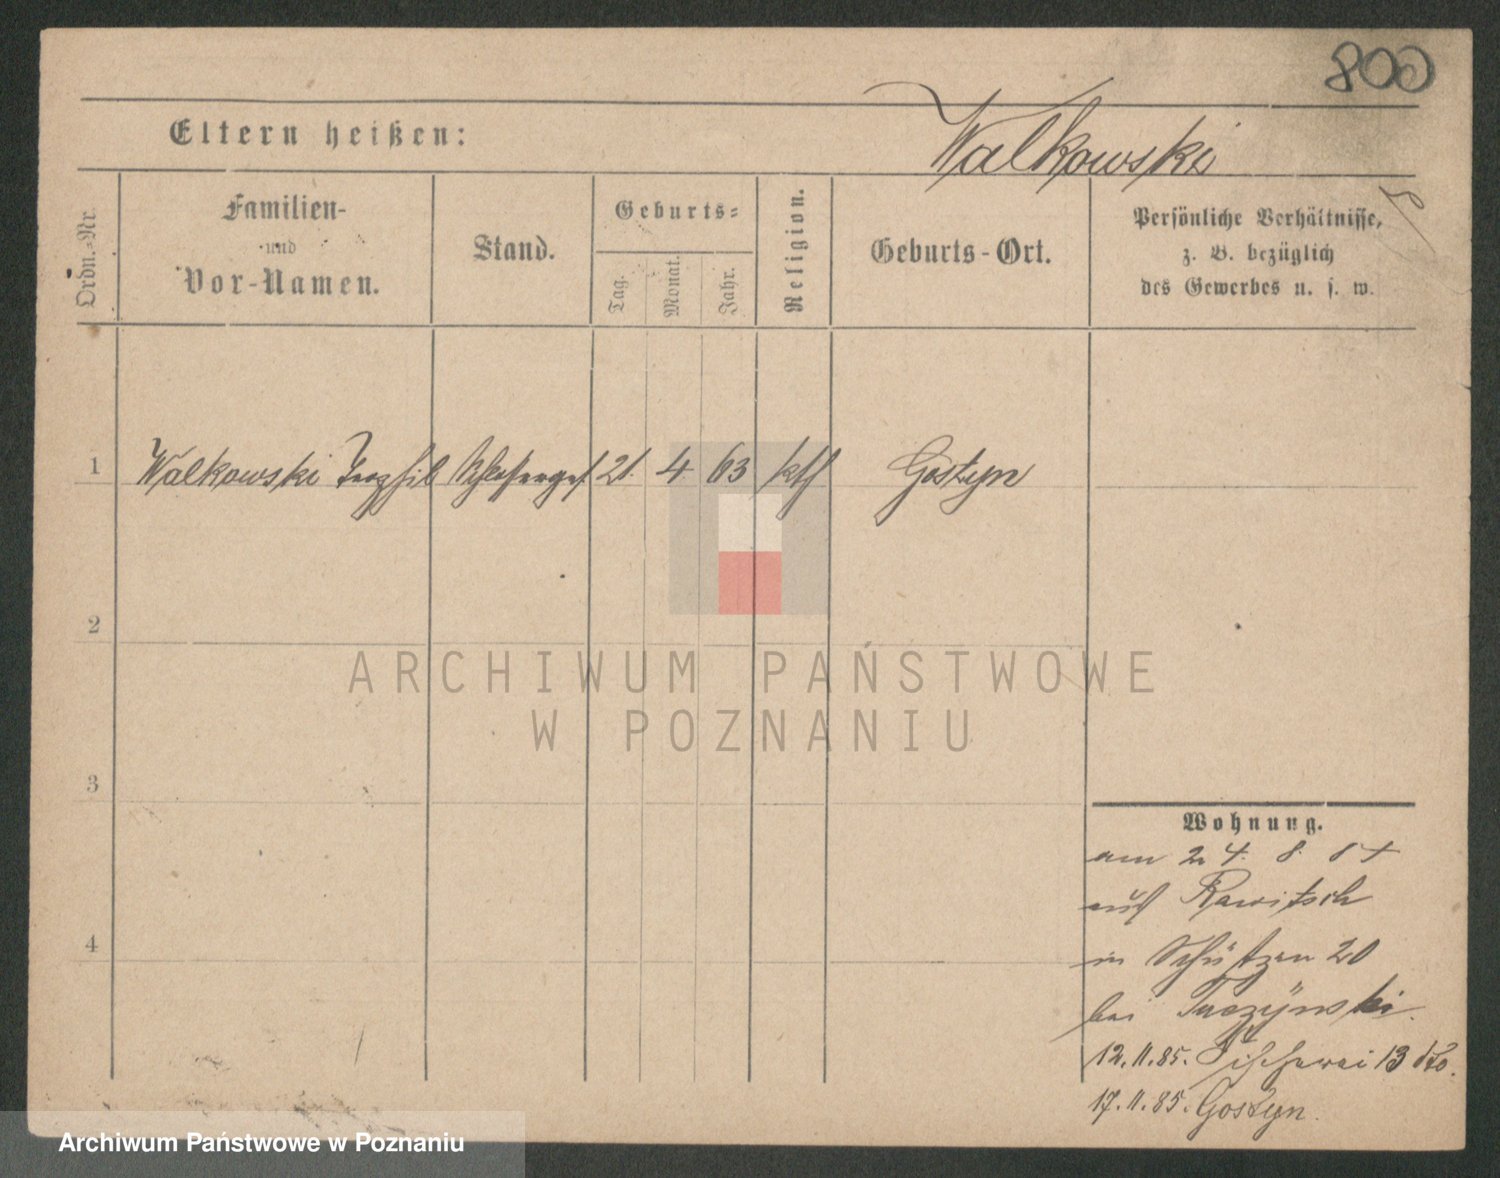 800
Eltern heißen:
Walkowski
Ordn.-Nr.
Familien-
und
Vor-Namen.
Stand.
Geburts-
Tag.
Monat.
Jahr.
Religion.
Geburts-Ort.
Persönliche Verhältnisse,
z. B. bezüglich
des Gewerbes u. s. w.
1 Walkowski Schlosserges. 21. 4. 63 kth Gostyn
2
3
4
ARCHIWUM PAŃSTWOWE
W POZNANIU
Wohnung.
am 24. 8. 84
aus Rawitsch
in Schützen 20
bei Tuczynski.
12. 11. 85. Fischerei 13 dto.
17. 11. 85. Gostyn.
Archiwum Państwowe w Poznaniu